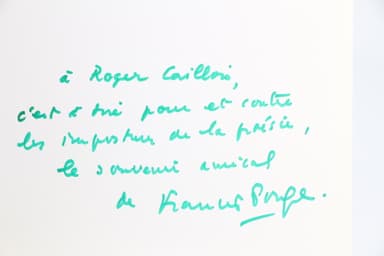 à Roger Caillois,
c'est à dire pour et contre
les impostures de la poésie,
le souvenir amical
de Francis Ponge.